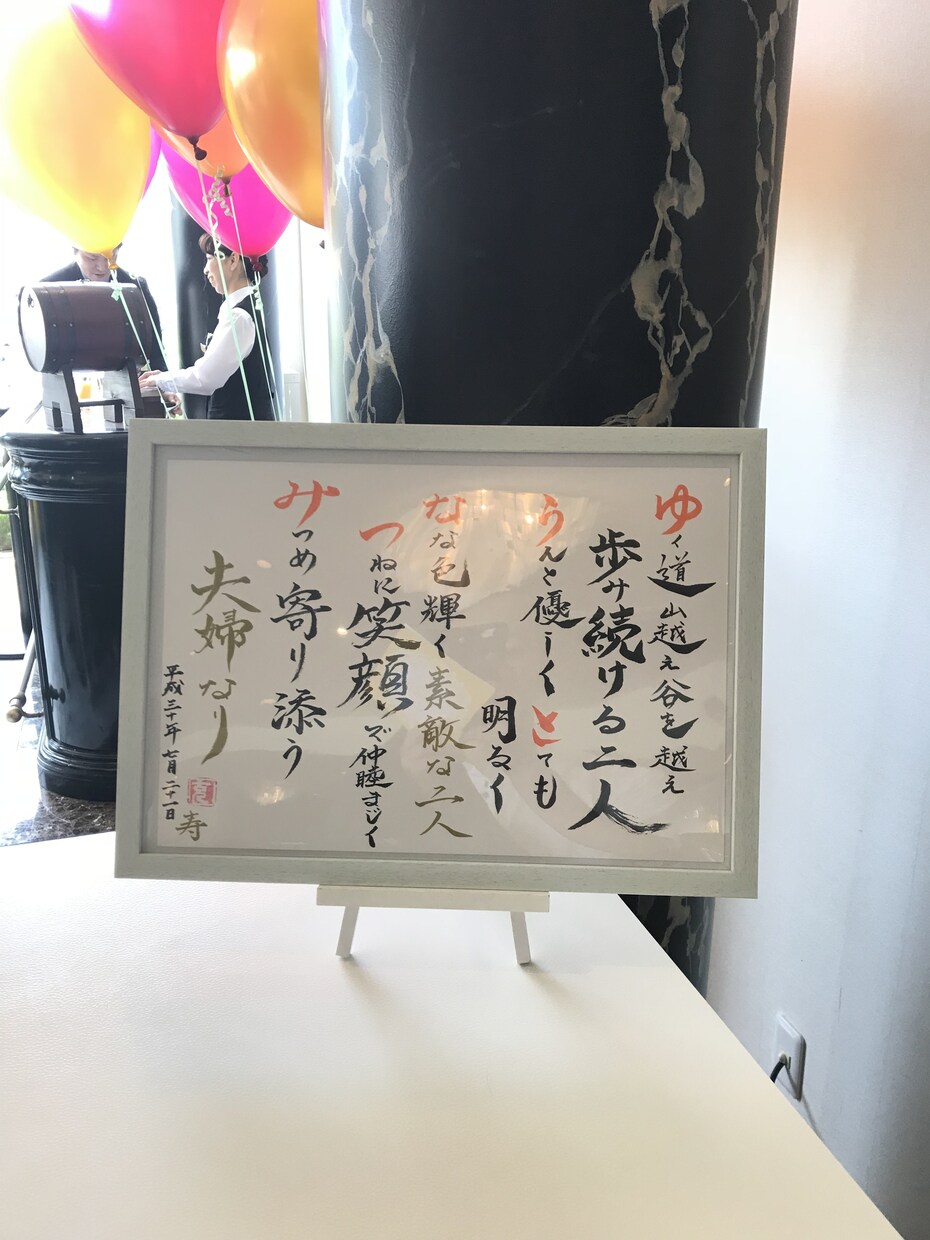 ゆく道 山越え谷を越え
歩み続ける二人
うんと優しく とても
明るく
なな色輝く素敵な二人
つねに笑顔で仲睦まじく
みつめ寄り添う
夫婦なり
平成三十年 七月 二十一日
寿